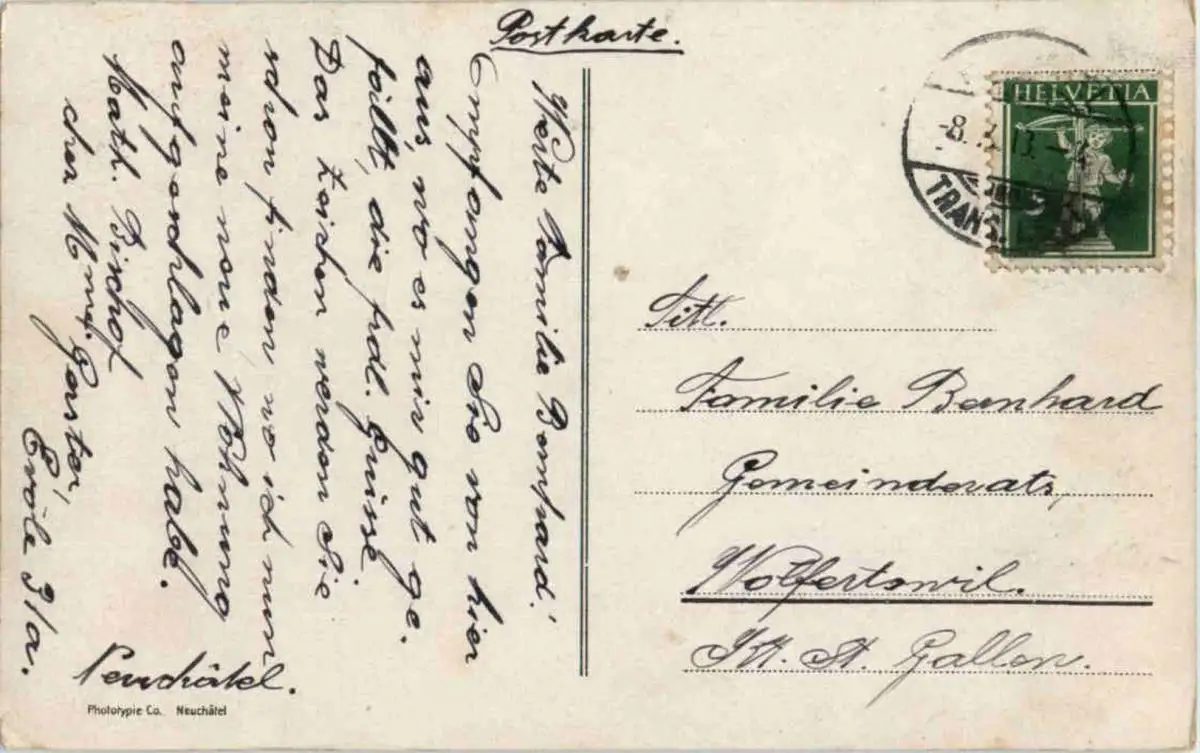 Postkarte.
Werte Familie Bernhard!
Empfangen Sie von hier
aus, wo es mir gut ge-
fällt, die frdl. Grüsse.
Das Zeichen werden Sie
schon finden, wo ich nun
meine neue Wohnung
aufgeschlagen habe.
Math. Bischof
chez Mme. Gerster,
Evole 3/a.
Neuchâtel.
Phototypie Co. Neuchâtel
HELVETIA
-8. 13.
TRANS
Titl.
Familie Bernhard
Gemeinderats,
Wolfertswil.
Kt. St. Gallen.